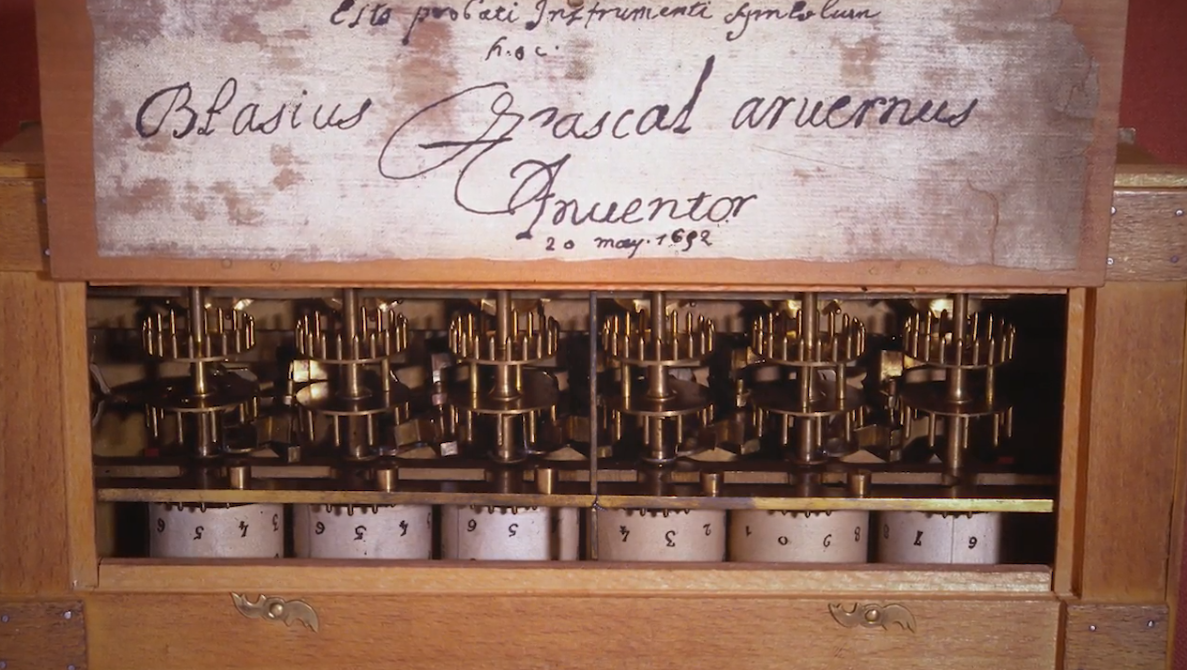 Esto probati Instrumenti symbolum
h.o.c.
Blasius Pascal aruernus
Inuentor
20 may. 1652
6 5 4 3 6 5 4 6 5 4 3 2 1 0 9 8 8 7 6